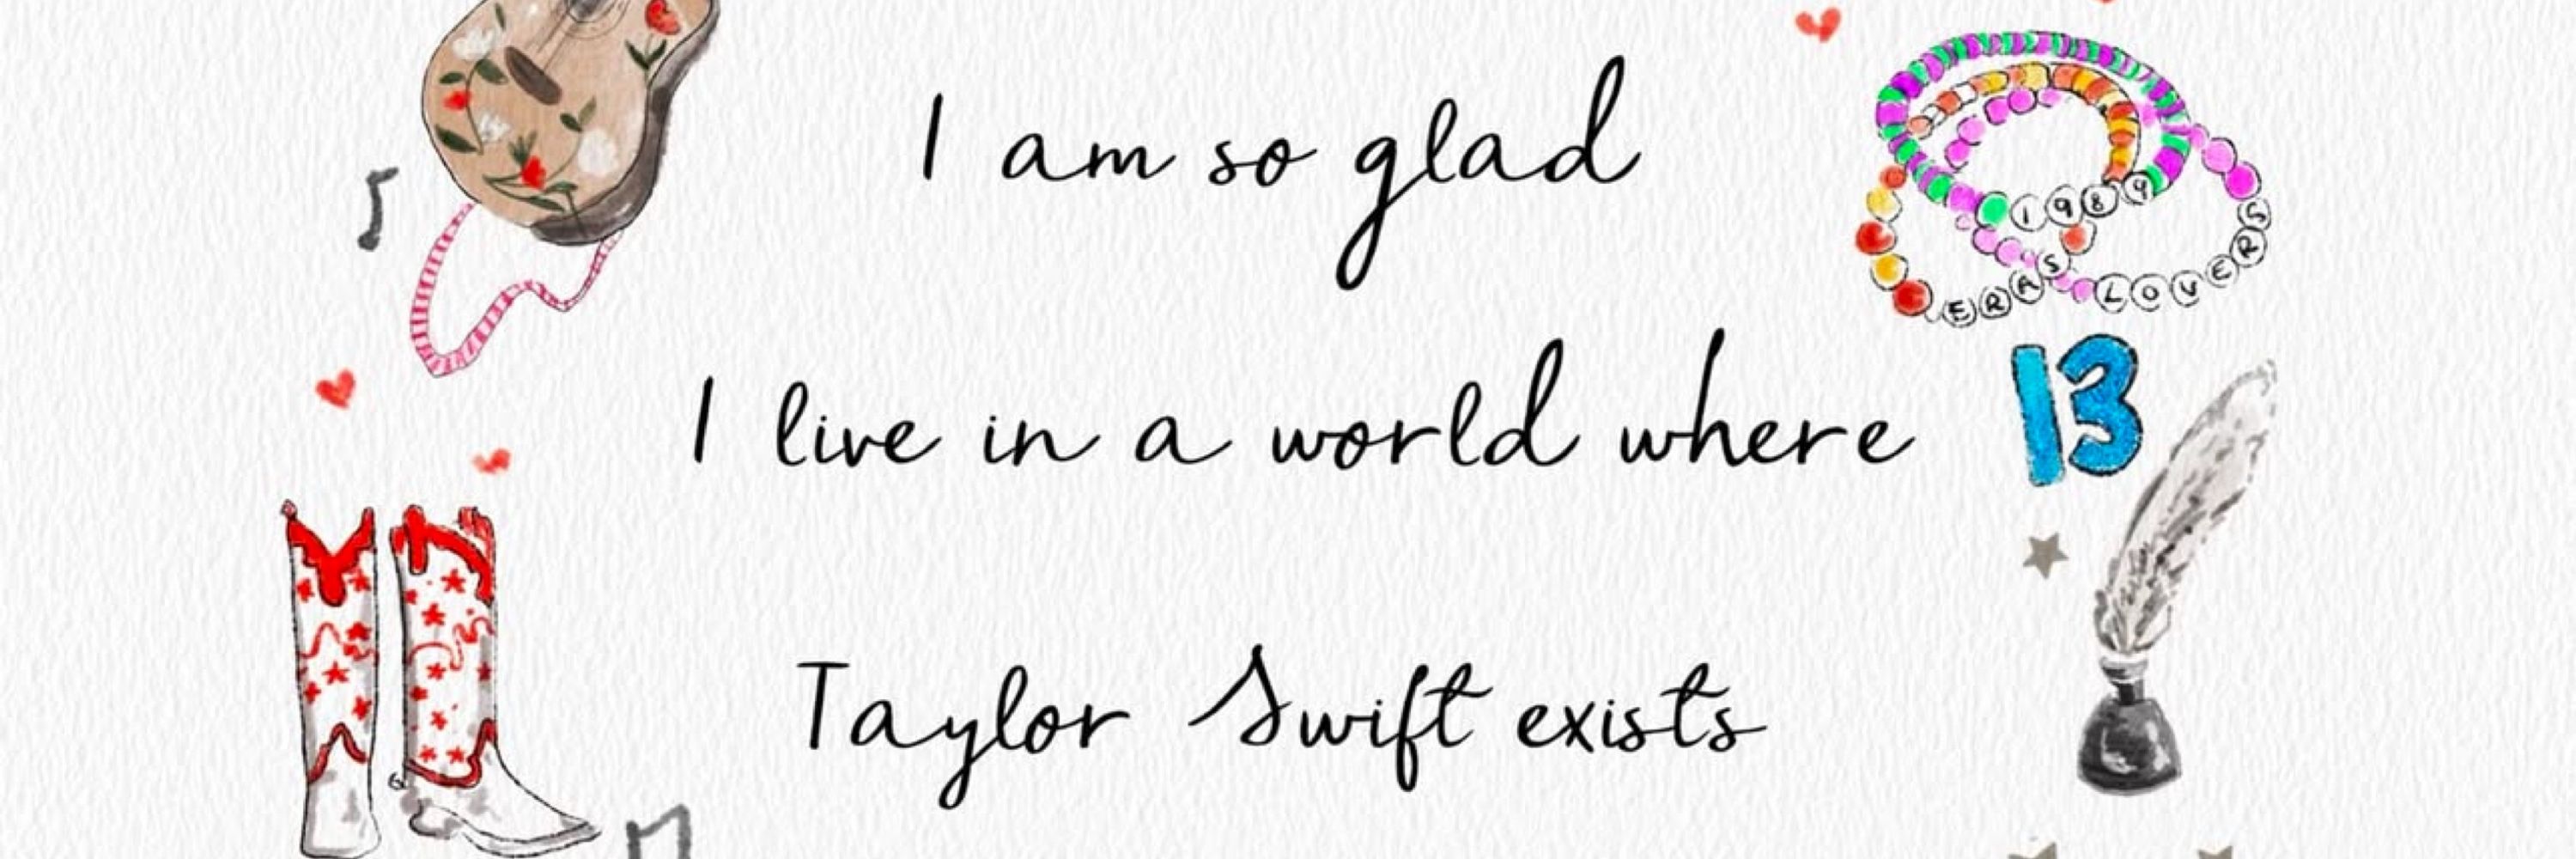 I am so glad
1989
ERAS LOVERS
I live in a world where
13
Taylor Swift exists